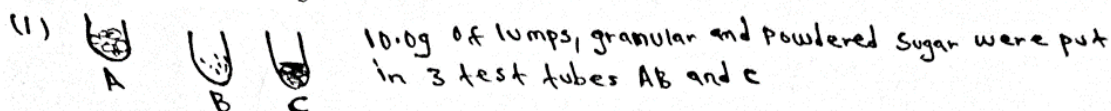 (1) 10.0g of lumps, granular and powdered sugar were put
in 3 test tubes AB and C
A
B
C